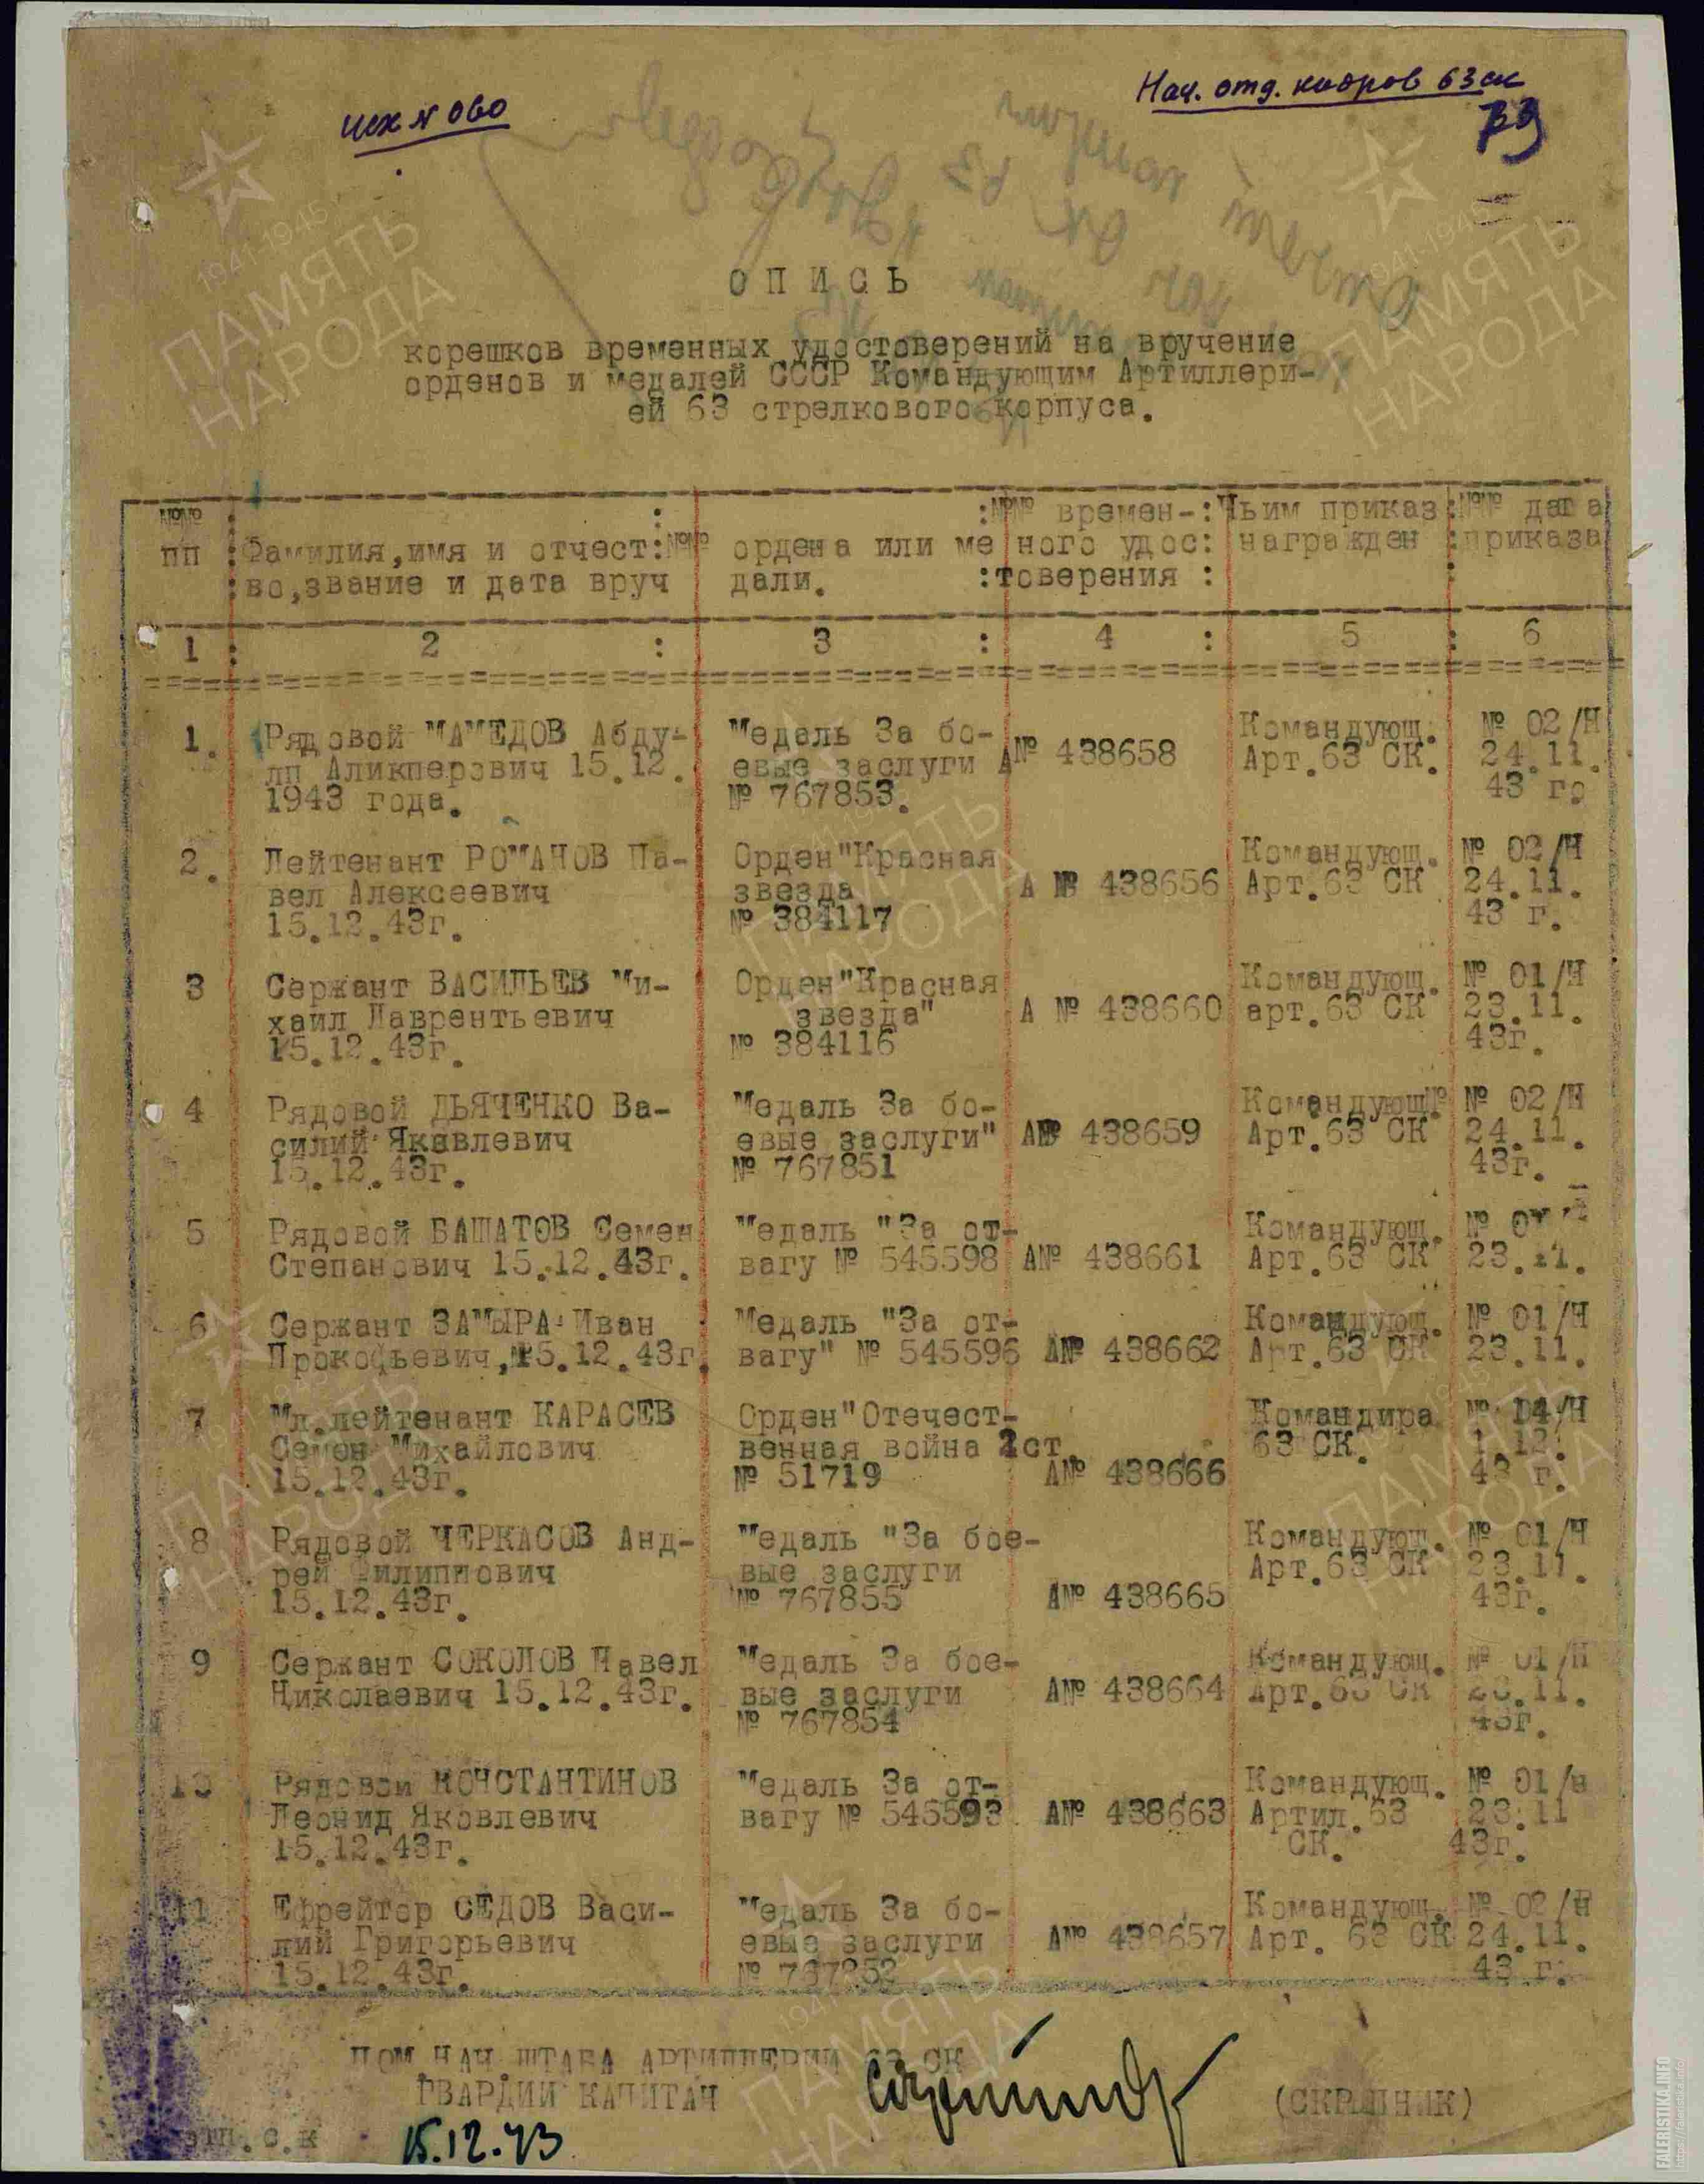 Нач. отд. кадров 63 ск
исх № 060
79
ОПИСЬ
корешков временных удостоверений на вручение
орденов и медалей СССР Командующим Артиллери-
ей 63 стрелкового корпуса.
№№ пп : Фамилия,имя и отчест: во,звание и дата вруч №№ ордена или ме дали. :№№ времен-: ного удос: товерения : Чьим приказ награжден №№ дата приказа
1 : 2 : 3 : 4 : 5 : 6
1. Рядовой МАМЕДОВ Абду- Медаль За бо- Командующ. № 02/Н
лп Аликперович 15.12. евые заслуги А№ 438658 Арт.63 СК. 24.11.
1943 года. № 767853. 43 го
2. Лейтенант РОМАНОВ Па- Орден"Красная Командующ. № 02/Н
вел Алексеевич звезда А № 438656 Арт.63 СК 24.11.
15.12.43г. № 384117 43 г.
3 Сержант ВАСИЛЬЕВ Ми- Орден"Красная Командующ. № 01/Н
хаил Лаврентьевич звезда" А № 438660 арт.63 СК 23.11.
15.12.43г. № 384116 43г.
4 Рядовой ДЬЯЧЕНКО Ва- Медаль За бо- Командующ № 02/Н
силий Яковлевич евые заслуги" А№ 438659 Арт.63 СК 24.11.
15.12.43г. № 767851 43г.
5 Рядовой БАШАТОВ Семен Медаль "За от- Командующ. №
Степанович 15.12.43г. вагу № 545598 А№ 438661 Арт.63 СК 23.11.
6 Сержант ЗАМЫРА Иван Медаль "За от- Командующ. № 01/Н
Прокофьевич, 15.12.43г. вагу" № 545596 А№ 438662 Арт.63 СК 23.11.
7 Мл.лейтенант КАРАСЕВ Орден"Отечест- Командира № 14/Н
Семен Михайлович венная война 2ст 63 СК. 1.12.
15.12.43г. № 51719 А№ 438666 43 г.
8 Рядовой ЧЕРКАСОВ Анд- Медаль "За бое- Командующ. № 01/Н
рей Филиппович вые заслуги Арт.63 СК 23.11.
15.12.43г. № 767855 А№ 438665 43г.
9 Сержант СОКОЛОВ Павел Медаль За бое- Командующ. № 01/Н
Николаевич 15.12.43г. вые заслуги А№ 438664 Арт.63 СК 23.11.
№ 767854 43г.
10 Рядовой КОНСТАНТИНОВ Медаль За от- Командующ. № 01/н
Леонид Яковлевич вагу № 545593 А№ 438663 Артил.63 23.11
15.12.43г. СК. 43г.
11 Ефрейтор СЕДОВ Васи- Медаль За бо- Командующ. № 02/Н
лий Григорьевич евые заслуги А№ 438657 Арт. 63 СК 24.11.
15.12.43г. № 767852 43 г.
ПОМ НАЧ ШТАБА АРТИЛЛЕРИИ 63 СК
ГВАРДИИ КАПИТАН (СКРЫПНИК)
15.12.43
1941-1945
ПАМЯТЬ
НАРОДА
FALERISTIKA.INFO
https://faleristika.info/